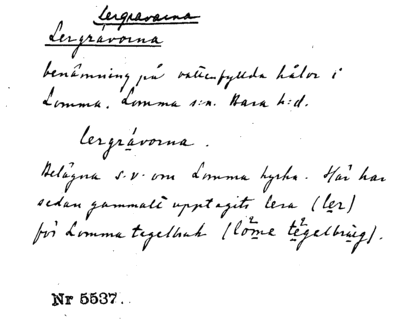 Lergravarna
Lergrávorna
benämning på vattenfyllda hålor i
Lomma. Lomma s:n. Bara h:d.
lergrávorna.
Belägna s.v. om Lomma kyrka. Här har
sedan gammalt upptagits lera (ler)
för Lomma tegelbruk (löme tégelbrug).
Nr 5537.